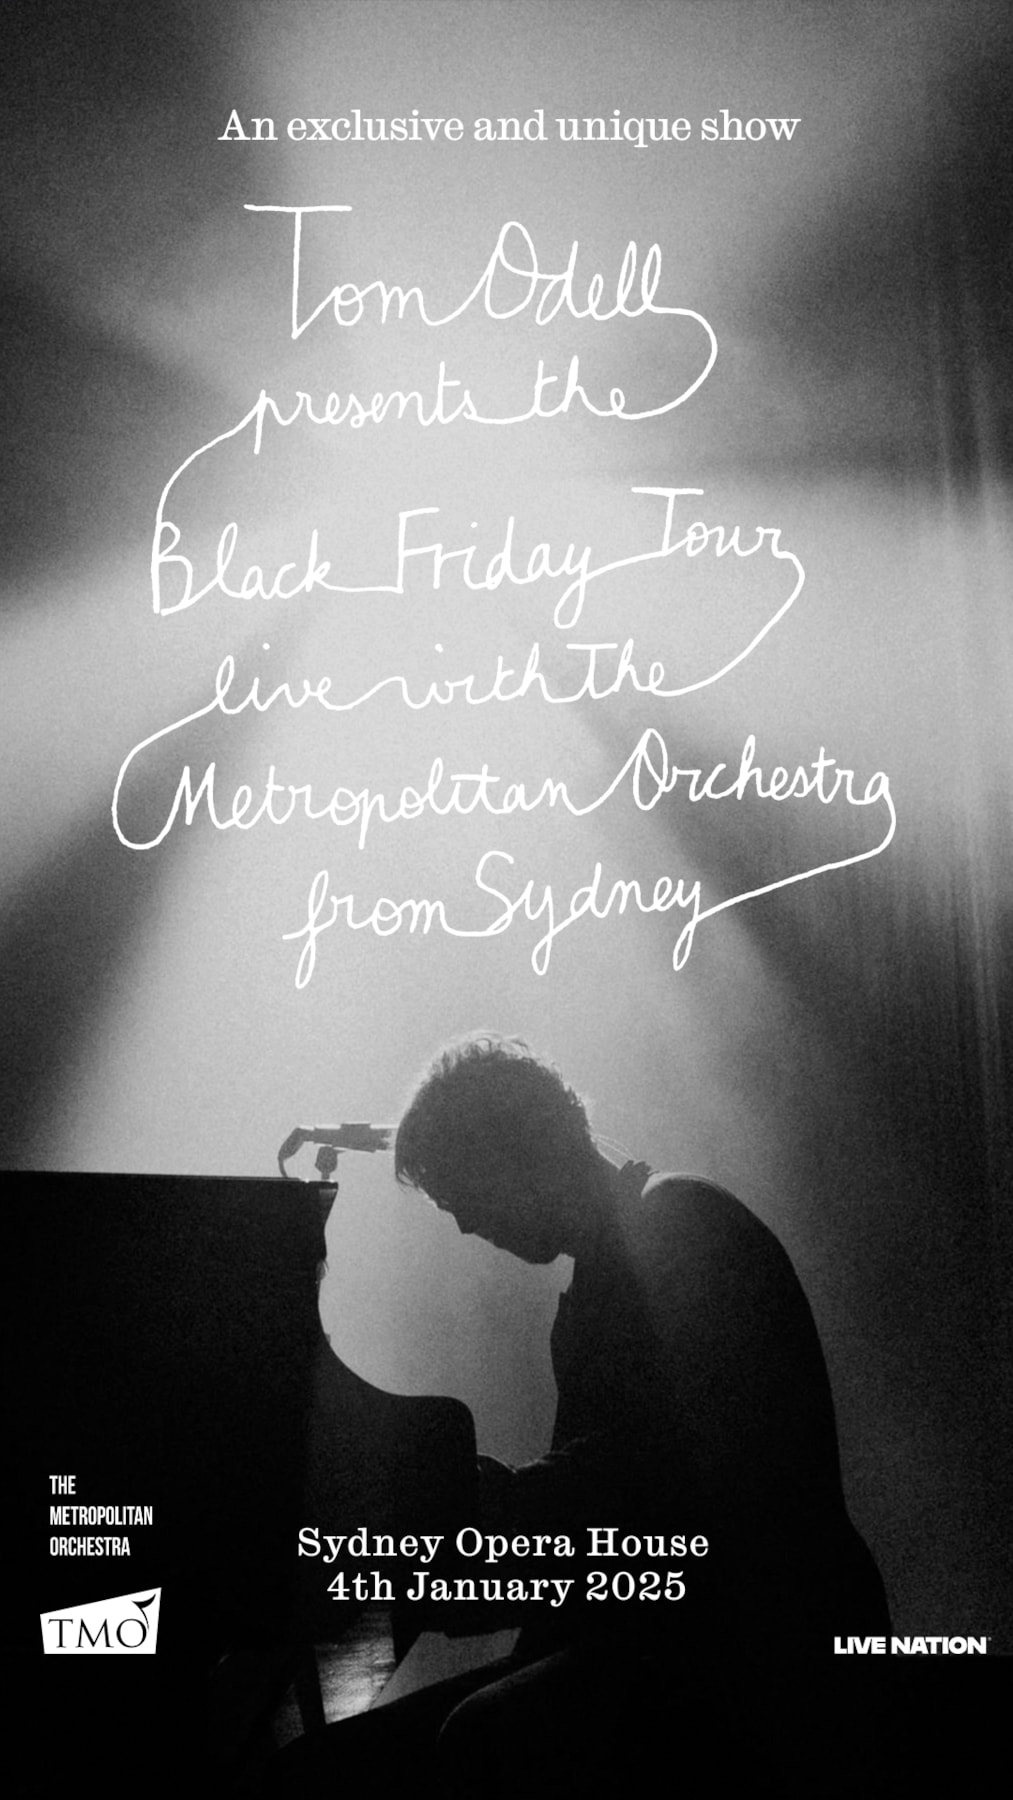 An exclusive and unique show
Tom Odell
presents the
Black Friday Tour
live with The
Metropolitan Orchestra
from Sydney
THE
METROPOLITAN
ORCHESTRA
TMO
Sydney Opera House
4th January 2025
LIVE NATION